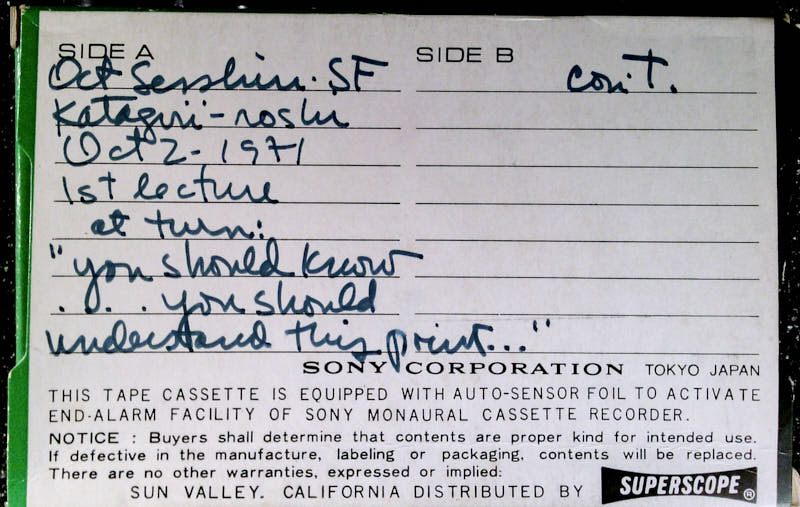 SIDE A
Oct Sesshin. SF
Katagiri-roshi
Oct 2-1971
1st lecture
at turn:
"you should know
. . . you should
understand this point..."
SIDE B
con't.
SONY CORPORATION TOKYO JAPAN
THIS TAPE CASSETTE IS EQUIPPED WITH AUTO-SENSOR FOIL TO ACTIVATE
END-ALARM FACILITY OF SONY MONAURAL CASSETTE RECORDER.
NOTICE : Buyers shall determine that contents are proper kind for intended use.
If defective in the manufacture, labeling or packaging, contents will be replaced.
There are no other warranties, expressed or implied:
SUN VALLEY. CALIFORNIA DISTRIBUTED BY SUPERSCOPE®